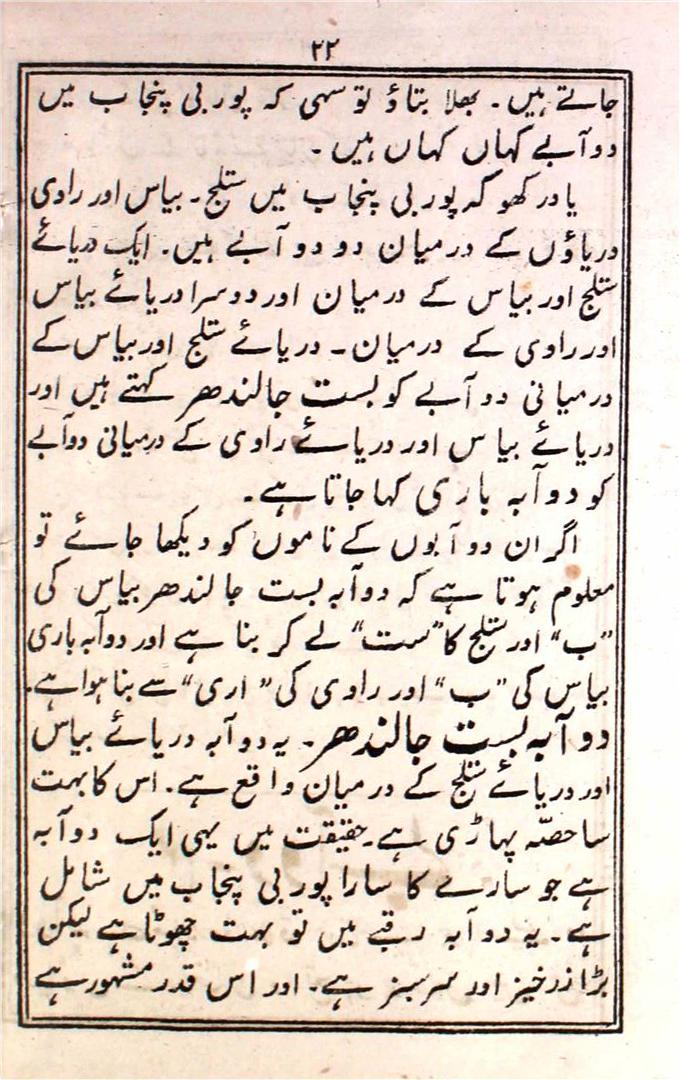 ۲۲
جاتے ہیں۔ بھلا بتاؤ تو سہی کہ پوربی پنجاب میں
دوآبے کہاں کہاں ہیں۔
یاد رکھو کہ پوربی پنجاب میں ستلج۔ بیاس اور راوی
دریاؤں کے درمیان دو دوآبے ہیں۔ ایک دریائے
ستلج اور بیاس کے درمیان اور دوسرا دریائے بیاس
اور راوی کے درمیان۔ دریائے ستلج اور بیاس کے
درمیانی دوآبے کو بست جالندھر کہتے ہیں اور
دریائے بیاس اور دریائے راوی کے درمیانی دوآبے
کو دوآبہ باری کہا جاتا ہے۔
اگر ان دوآبوں کے ناموں کو دیکھا جائے تو
معلوم ہوتا ہے کہ دوآبہ بست جالندھر بیاس کی
”ب“ اور ستلج کا ”ست“ لے کر بنا ہے اور دوآبہ باری
بیاس کی ”ب“ اور راوی کی ”اری“ سے بنا ہوا ہے۔
دوآبہ بست جالندھر۔ یہ دوآبہ دریائے بیاس
اور دریائے ستلج کے درمیان واقع ہے۔ اس کا بہت
سا حصّہ پہاڑی ہے۔ حقیقت میں یہی ایک دوآبہ
ہے جو سارے کا سارا پوربی پنجاب میں شامل
ہے۔ یہ دوآبہ رقبے میں تو بہت چھوٹا ہے لیکن
بڑا زرخیز اور سرسبز ہے۔ اور اس قدر مشہور ہے